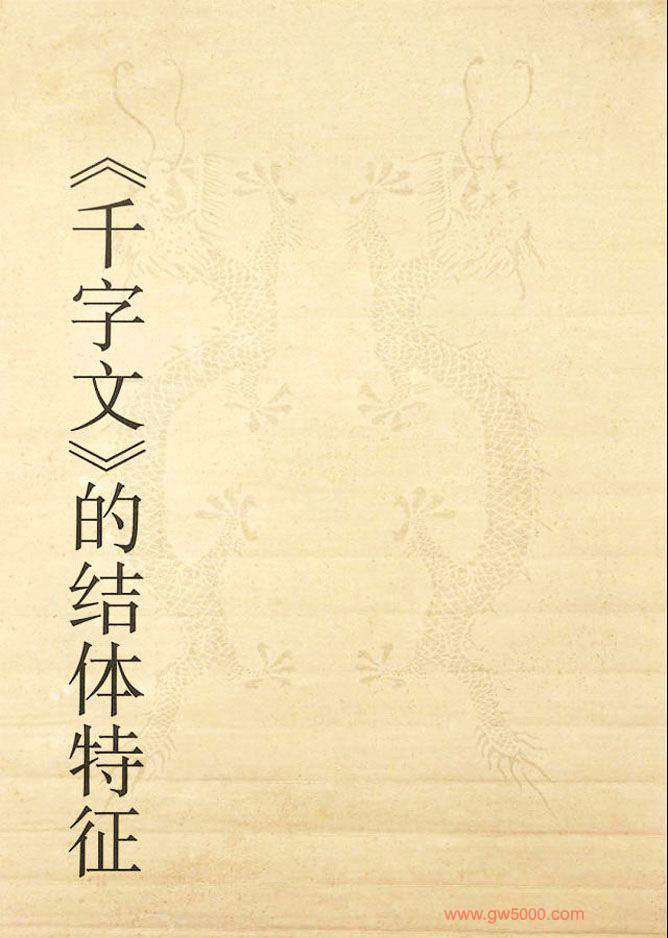 《千字文》的结体特征
www.gw5000.com